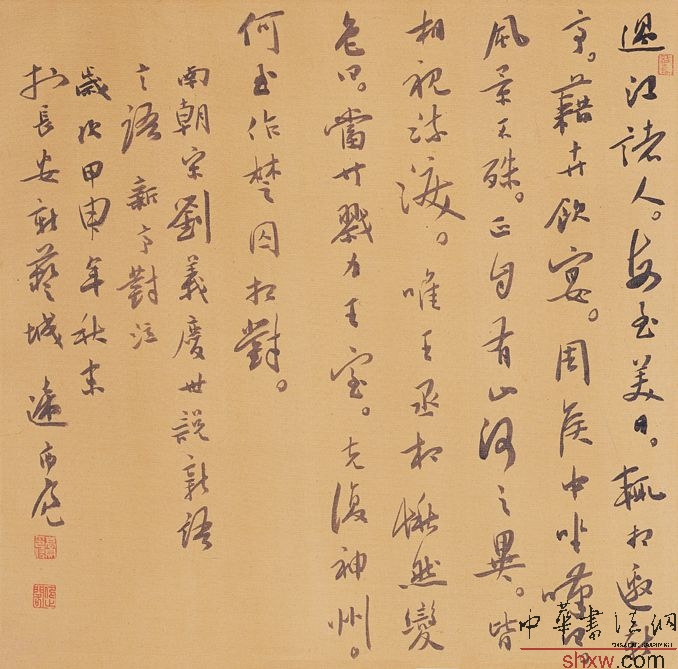 過江諸人。每至美日。輒相邀新
亭。藉卉飲宴。周侯中坐嘆曰。
風景不殊。正自有山河之異。皆
相視流淚。唯王丞相愀然變
色曰。當共戮力王室。克復神州。
何至作楚囚相對。
南朝宋劉義慶世說新語
言語 新亭對泣
歲次甲申年秋書
於長安新藝城
中華書法網
shxw.com